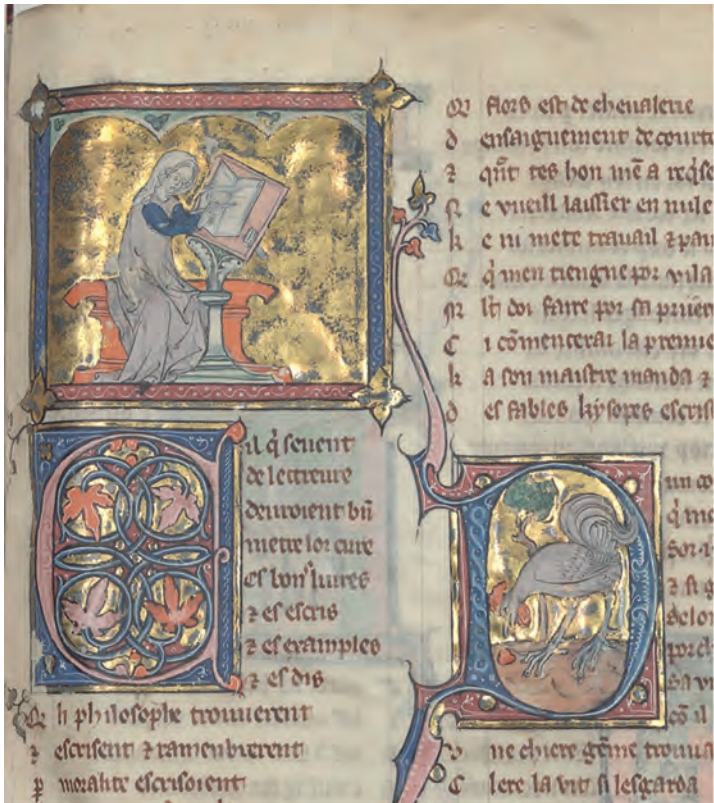 Cil q̇ seuent
de lectreure
deuroient bñ
metre lor cure
Es bons liures
⁊ es escris
⁊ es examples
⁊ es dis
Q li philosophe trouuerent
⁊ escrisent ⁊ ramenbrerent
P moralite escrisoient
Q flors est de cheualerie
D ensaignement de courte
⁊ qñt tes hon mẽ a reqiſe
N e vueill laissier en nule
K e ni mete trauail ⁊ pai
Q q̇ men tiengne por vila
M lt doi faire por sa priiere
C i cõmencerai la premie
K a son maistre manda ⁊
D es fables kysopes escrist
Dun co
q̇ mo
Sor .i.
⁊ si g
selon
porch
sa vi
cõ il
U ne chiere gẽme trouua
C lere la vit si lesgarda